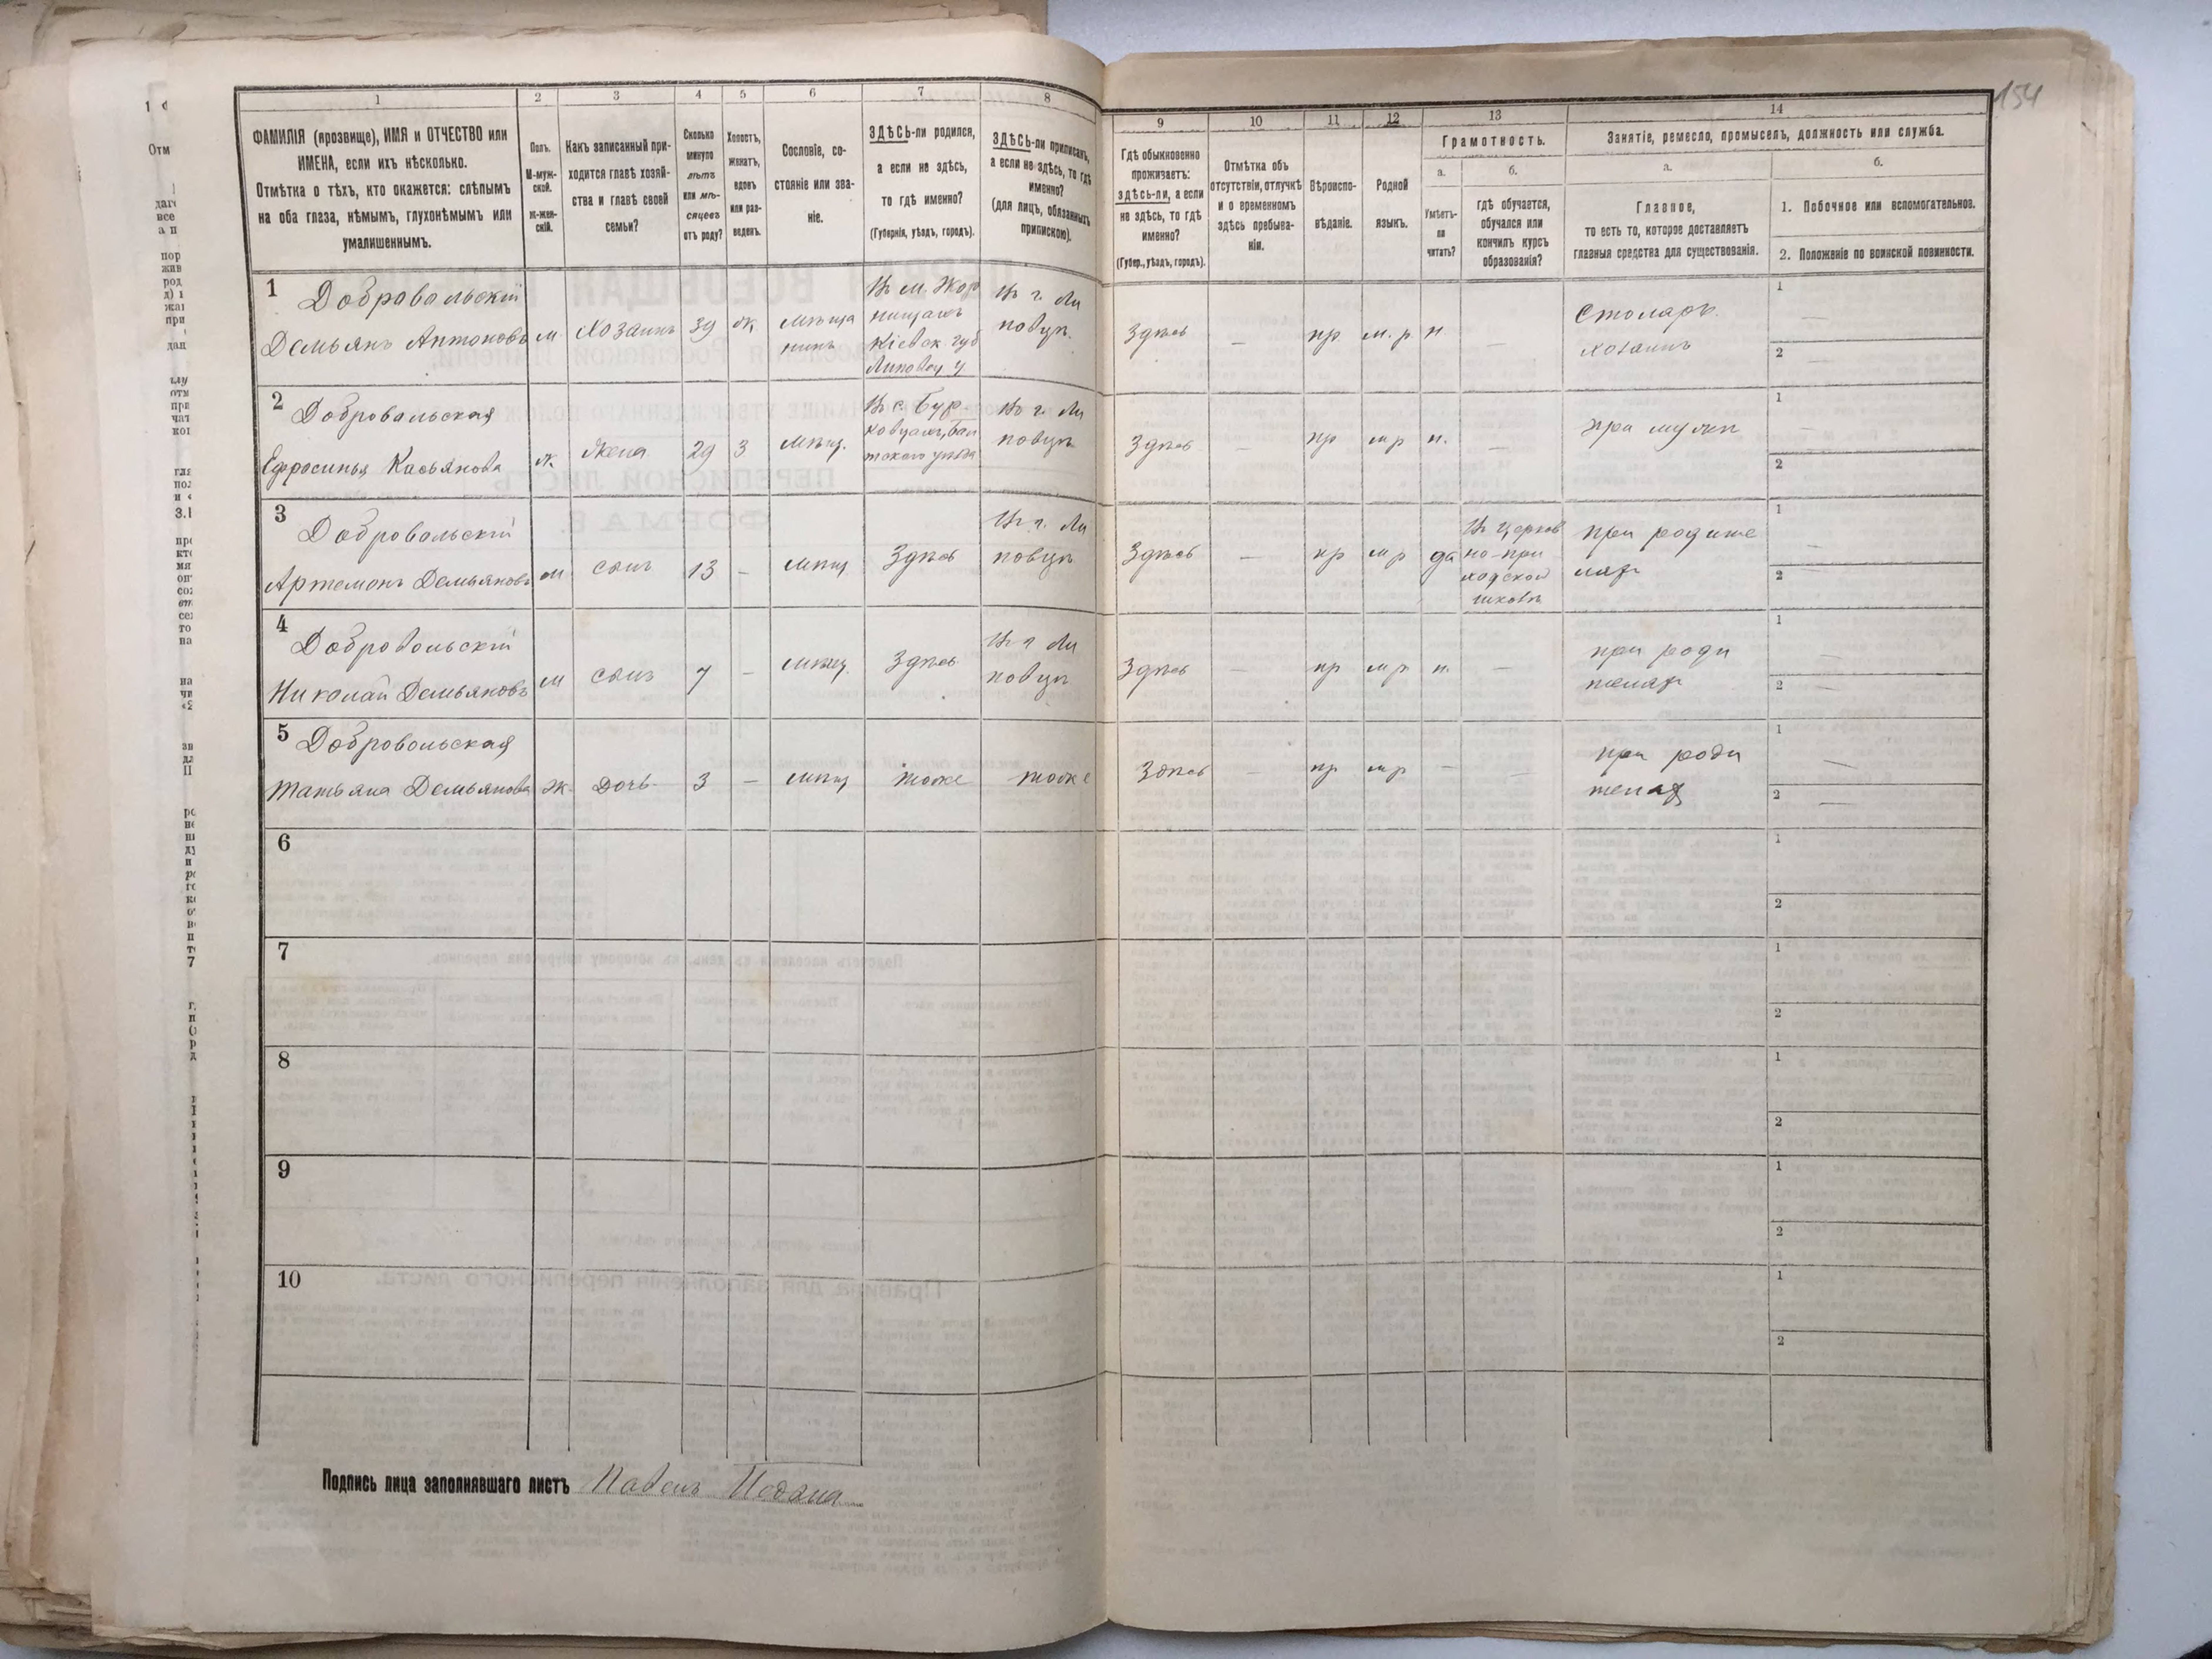 154
1 2 3 4 5 6 7 8 9 10 11 12 13 14
ФАМИЛІЯ (прозвище), ИМЯ и ОТЧЕСТВО или
ИМЕНА, если ихъ нѣсколько.
Отмѣтка о тѣхъ, кто окажется: слѣпымъ
на оба глаза, нѣмымъ, глухонѣмымъ или
умалишеннымъ.
Полъ.
М-муж-
ской.
Ж-жен-
скій.
Какъ записанный при-
ходится главѣ хозяй-
ства и главѣ своей
семьи?
Сколько
минуло
лѣтъ
или мѣ-
сяцевъ
отъ роду?
Холостъ,
женатъ,
вдовъ
или раз-
веденъ.
Сословіе, со-
стояніе или зва-
ніе.
ЗДѢСЬ-ли родился,
а если не здѣсь,
то гдѣ именно?
(Губернія, уѣздъ, городъ).
ЗДѢСЬ-ли приписанъ,
а если не здѣсь, то гдѣ
именно?
(для лицъ, обязанныхъ
припискою).
Гдѣ обыкновенно
проживаетъ:
здѣсь-ли, а если
не здѣсь, то гдѣ
именно?
(Губер., уѣздъ, городъ).
Отмѣтка объ
отсутствіи, отлучкѣ
и о временномъ
здѣсь пребыва-
ніи.
Вѣроиспо-
вѣданіе.
Родной
языкъ.
Грамотность.
а.
Умѣетъ-
ли
читать?
б.
гдѣ обучается,
обучался или
кончилъ курсъ
образованія?
Занятіе, ремесло, промыселъ, должность или служба.
а.
Главное,
то есть то, которое доставляетъ
главныя средства для существованія.
б.
1. Побочное или вспомогательное.
2. Положеніе по воинской повинности.
1
Добровольскій
Демьянъ Антоновъ
м
Хозаинъ
39
ж
мѣща
нинъ
Въ м.
Кіевск. губ
Липовец у
Въ г. Ли
повцѣ.
Здѣсь
—
пр
м. р
н
—
Столяръ
хозаинъ
1 —
2
2
Добровольская
Ефросинья Касьянова
ж
Жена
29
З
мѣщ.
Въ с.
Въ г. Ли
повцѣ
Здѣсь
—
пр
м р
н.
—
при мужѣ
1 —
2
3
Добровольскій
Артемонъ Демьяновъ
м
сынъ
13
—
мѣщ
Здѣсь
Въ г. Ли
повцѣ
Здѣсь
—
пр
м р
да
Въ церков
но-при
ходской
школѣ
при родите
ляхъ
1 —
2 —
4
Добровольскій
Николай Демьяновъ
м
сынъ
7
—
мѣщ
Здѣсь
Въ г Ли
повцѣ
Здѣсь
—
пр
м р
н.
—
при роди
теляхъ
1 —
2 —
5
Добровольская
Татьяна Демьянова
ж
дочь
3
—
мѣщ
тоже
тоже
Здѣсь
—
пр
м р
—
—
при роди
телях
1 —
2 —
6
1
2
7
1
2
8
1
2
9
1
2
10
1
2
Подпись лица заполнявшаго листъ Павелъ